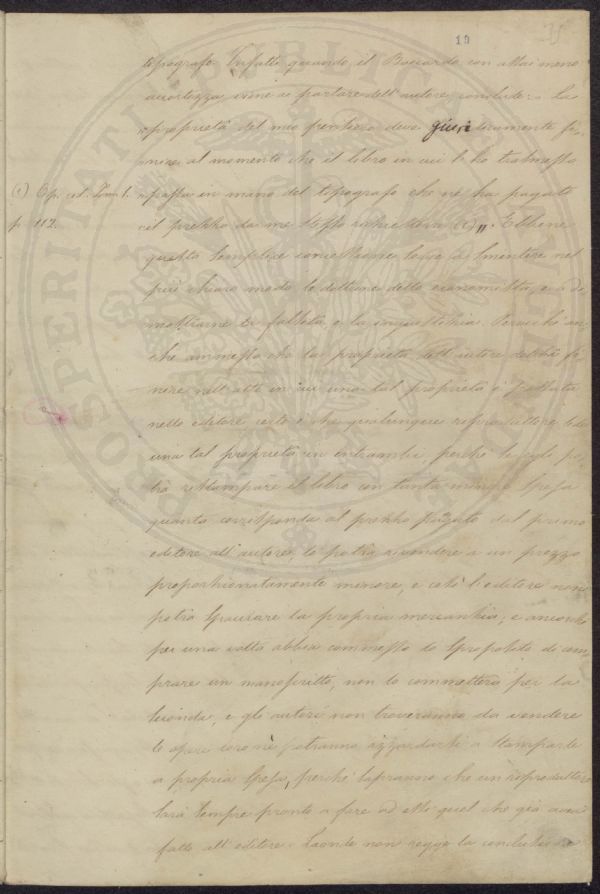 10
tipografo. Infatti quando il Boccardo con assai meno
accortezza viene a parlare dell'autore, conclude: La
proprietà del mio pensiero deve giuridicamente fi-
nire al momento che il libro in cui l'ho trasmesso
(1) Op. cit. Tom. 1. passa in mano del tipografo che ne ha pagato
p. 112. il prezzo da me stesso richiesto (1)„. Ebbene
questa semplice concessione basta a smentire nel
più chiaro modo le dottrine dello economista, e a di-
mostrarne la falsità e la ingiustizia. Perocchè an-
che ammesso che la proprietà dell'autore debba fi-
nire nell'atto in cui una tal proprietà è passata
nello editore, certo è che qualunque riproduttore lede
una tal proprietà in entrambi perchè se egli po-
trà ristampare il libro con tanta minore spesa
quanto corrisponda al prezzo pagato dal primo
editore all'autore, lo potrà rivendere a un prezzo
proporzionatamente minore, e così l'editore non
potrà spacciare la propria mercanzia; e ancorchè
per una volta abbia commesso lo sproposito di com-
prare un manoscritto, non lo commetterà per la
seconda, e gli autori non troveranno da vendere
le opere loro nè potranno azzardarsi a stamparle
a propria spesa, perchè sapranno che un riproduttore
sarà sempre pronto a fare ad essi quel che già avea
fatto all'editore. Laonde non regge la conclusione
PROSPERITATI PUBLICAE AUGENDAE